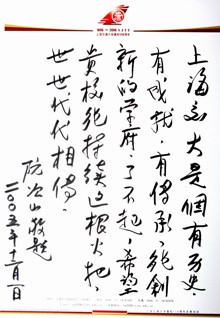 上海交大是個有历史、
有成就、有传承、能創
新的学府、了不起、希望
贵校能持续这根火把、
世世代代相传。
阮次山敬题
二〇〇五年十二月一日